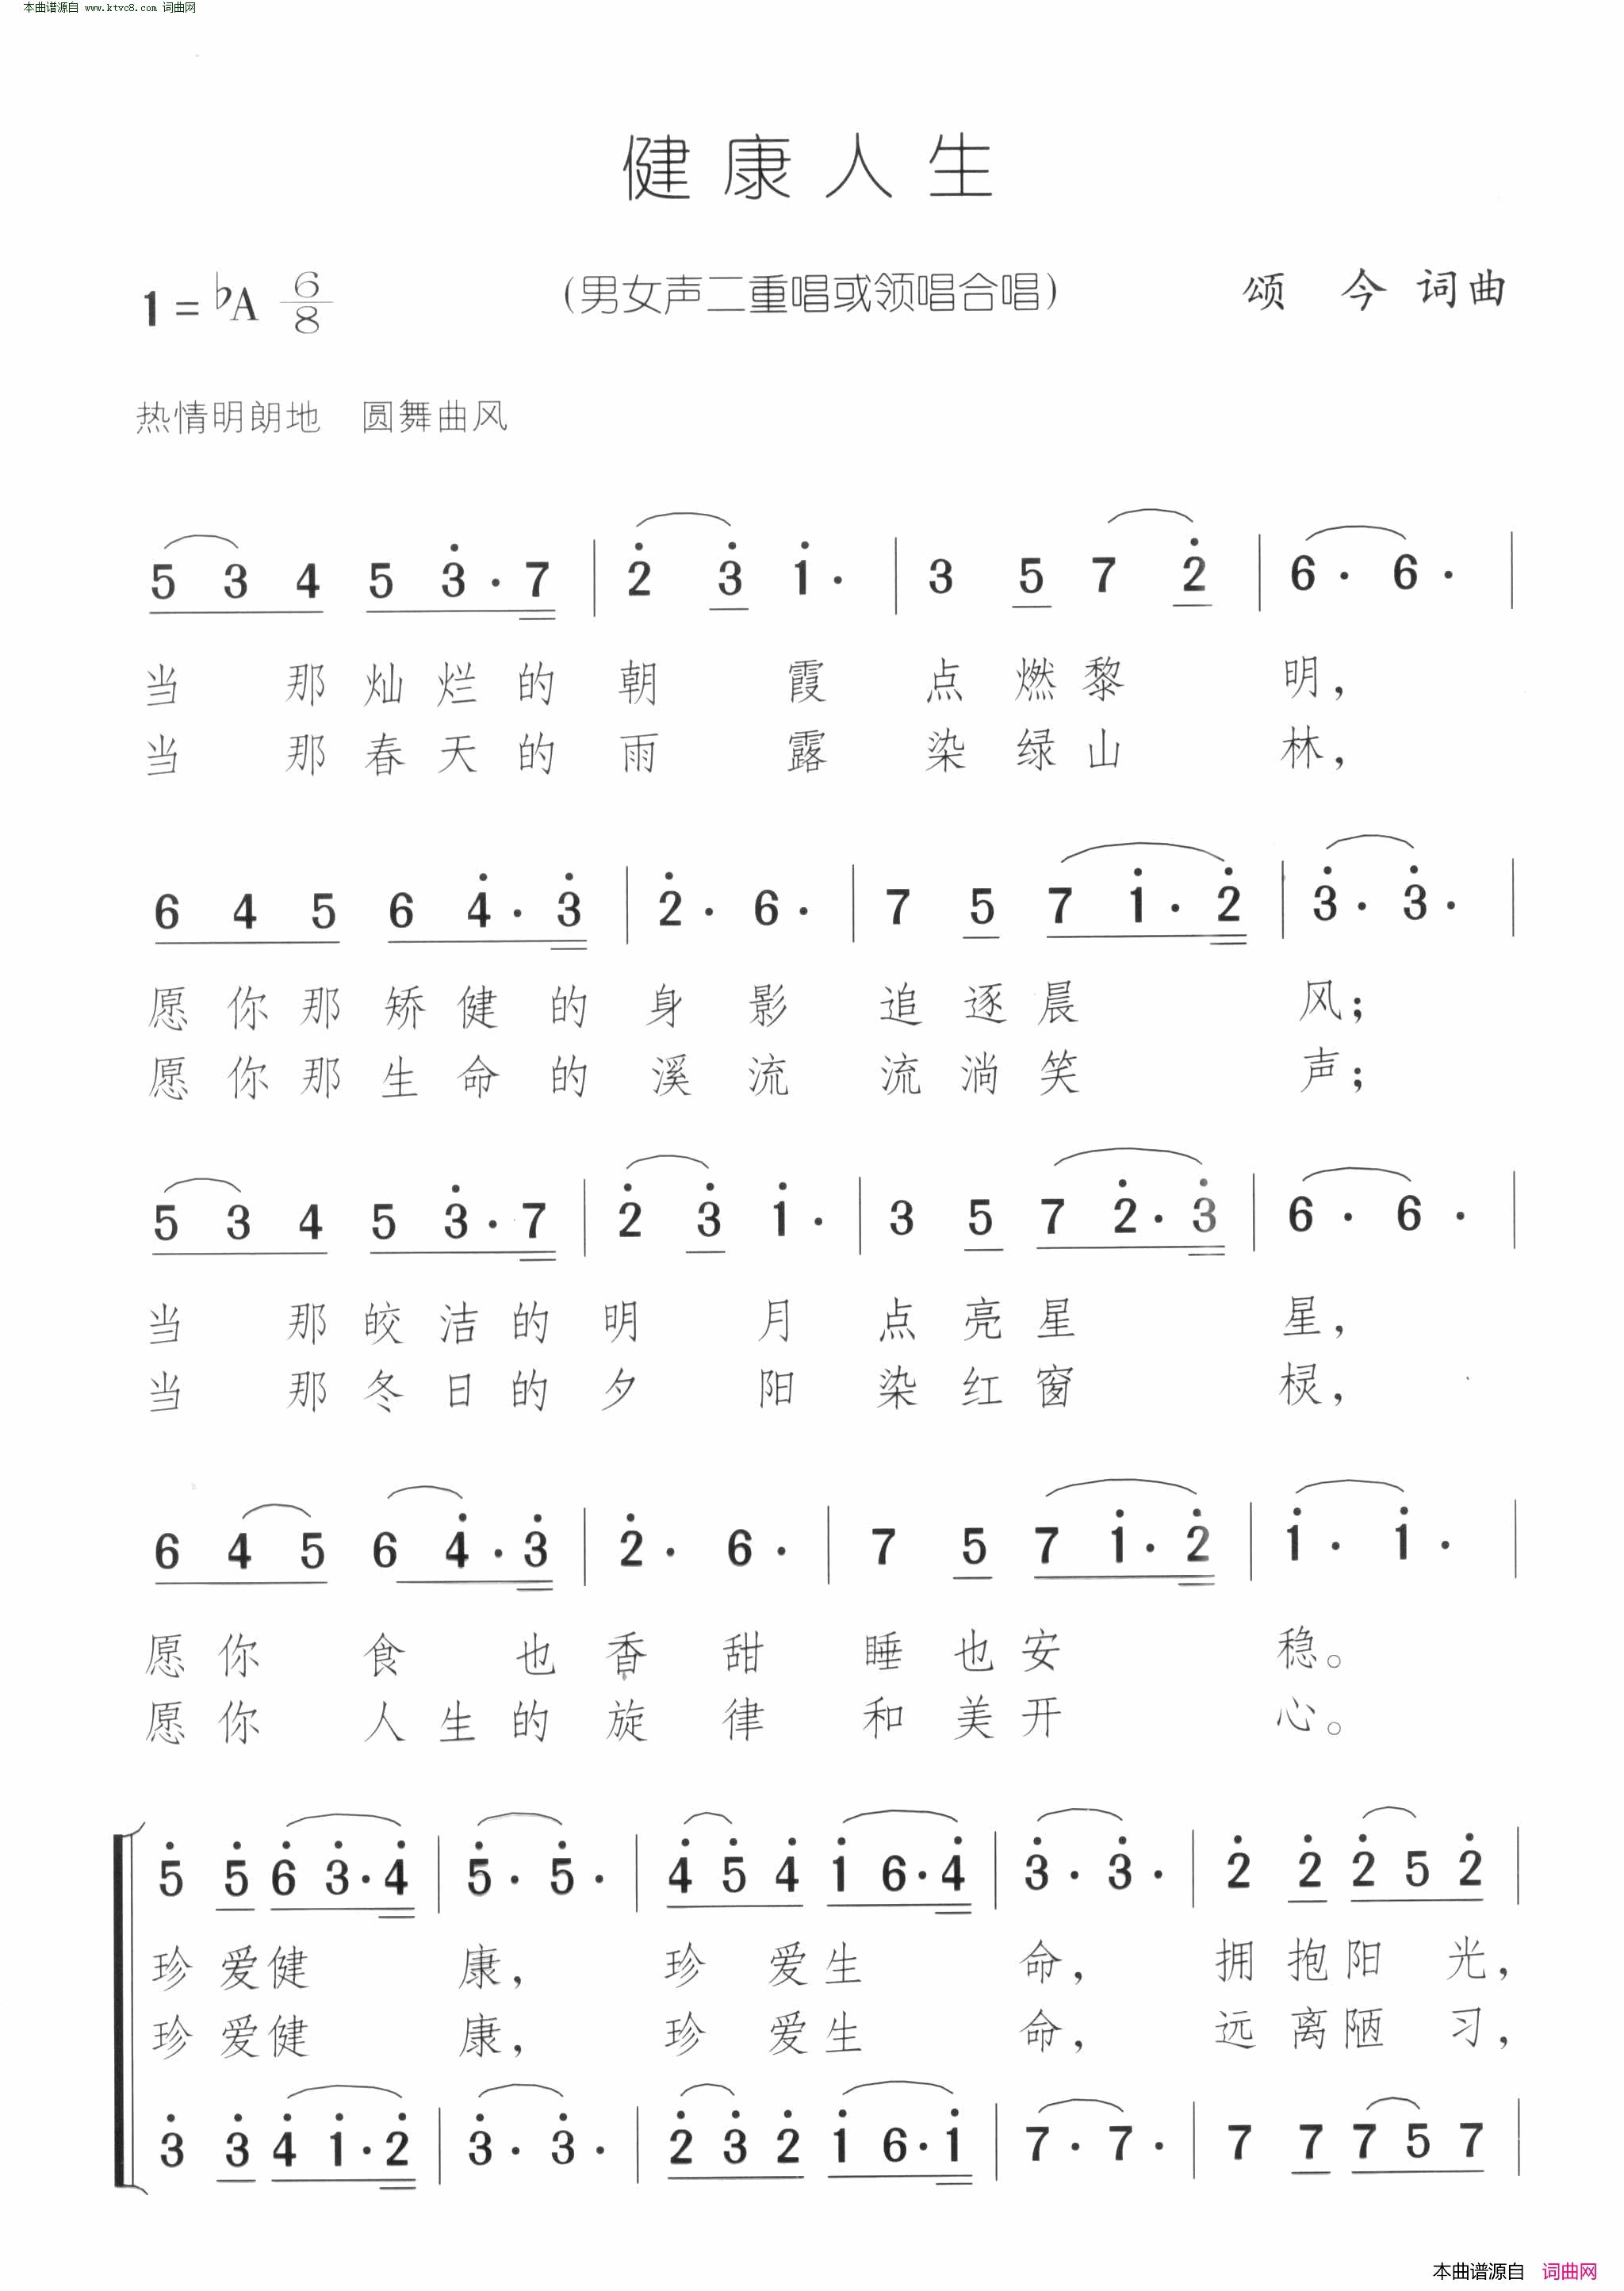 本曲谱源自 www.ktvc8.com 词曲网
健康人生
1=♭A 6/8 (男女声二重唱或领唱合唱) 颂 今 词曲
热情明朗地 圆舞曲风
5 3 4 5 3̇·7 | 2̇ 3̇ 1̇· | 3 5 7 2̇ | 6· 6· |
当 那灿烂的朝 霞 点燃黎 明，
当 那春天的雨 露 染绿山 林，
6 4 5 6 4̇·3̇ | 2̇· 6· | 7 5 7 1̇·2̇ | 3̇· 3̇· |
愿你那矫健的身影 追逐晨 风；
愿你那生命的溪流 流淌笑 声；
5 3 4 5 3̇·7 | 2̇ 3̇ 1̇· | 3 5 7 2̇·3̇ | 6· 6· |
当 那皎洁的明 月 点亮星 星，
当 那冬日的夕 阳 染红窗 棂，
6 4 5 6 4̇·3̇ | 2̇· 6· | 7 5 7 1̇·2̇ | 1̇· 1̇· |
愿你 食 也香甜 睡也安 稳。
愿你 人生的旋律 和美开 心。
5̇ 5̇ 6̇ 3̇·4̇ | 5̇· 5̇· | 4̇ 5̇ 4̇ 1̇ 6·4̇ | 3̇· 3̇· | 2̇ 2̇ 2̇ 5 2̇ |
珍爱健 康， 珍 爱生 命， 拥抱阳 光，
珍爱健 康， 珍 爱生 命， 远离陋 习，
3̇ 3̇ 4̇ 1̇·2̇ | 3̇· 3̇· | 2̇ 3̇ 2̇ 1̇ 6·1̇ | 7· 7· | 7 7 7 5 7 |
本曲谱源自 词曲网